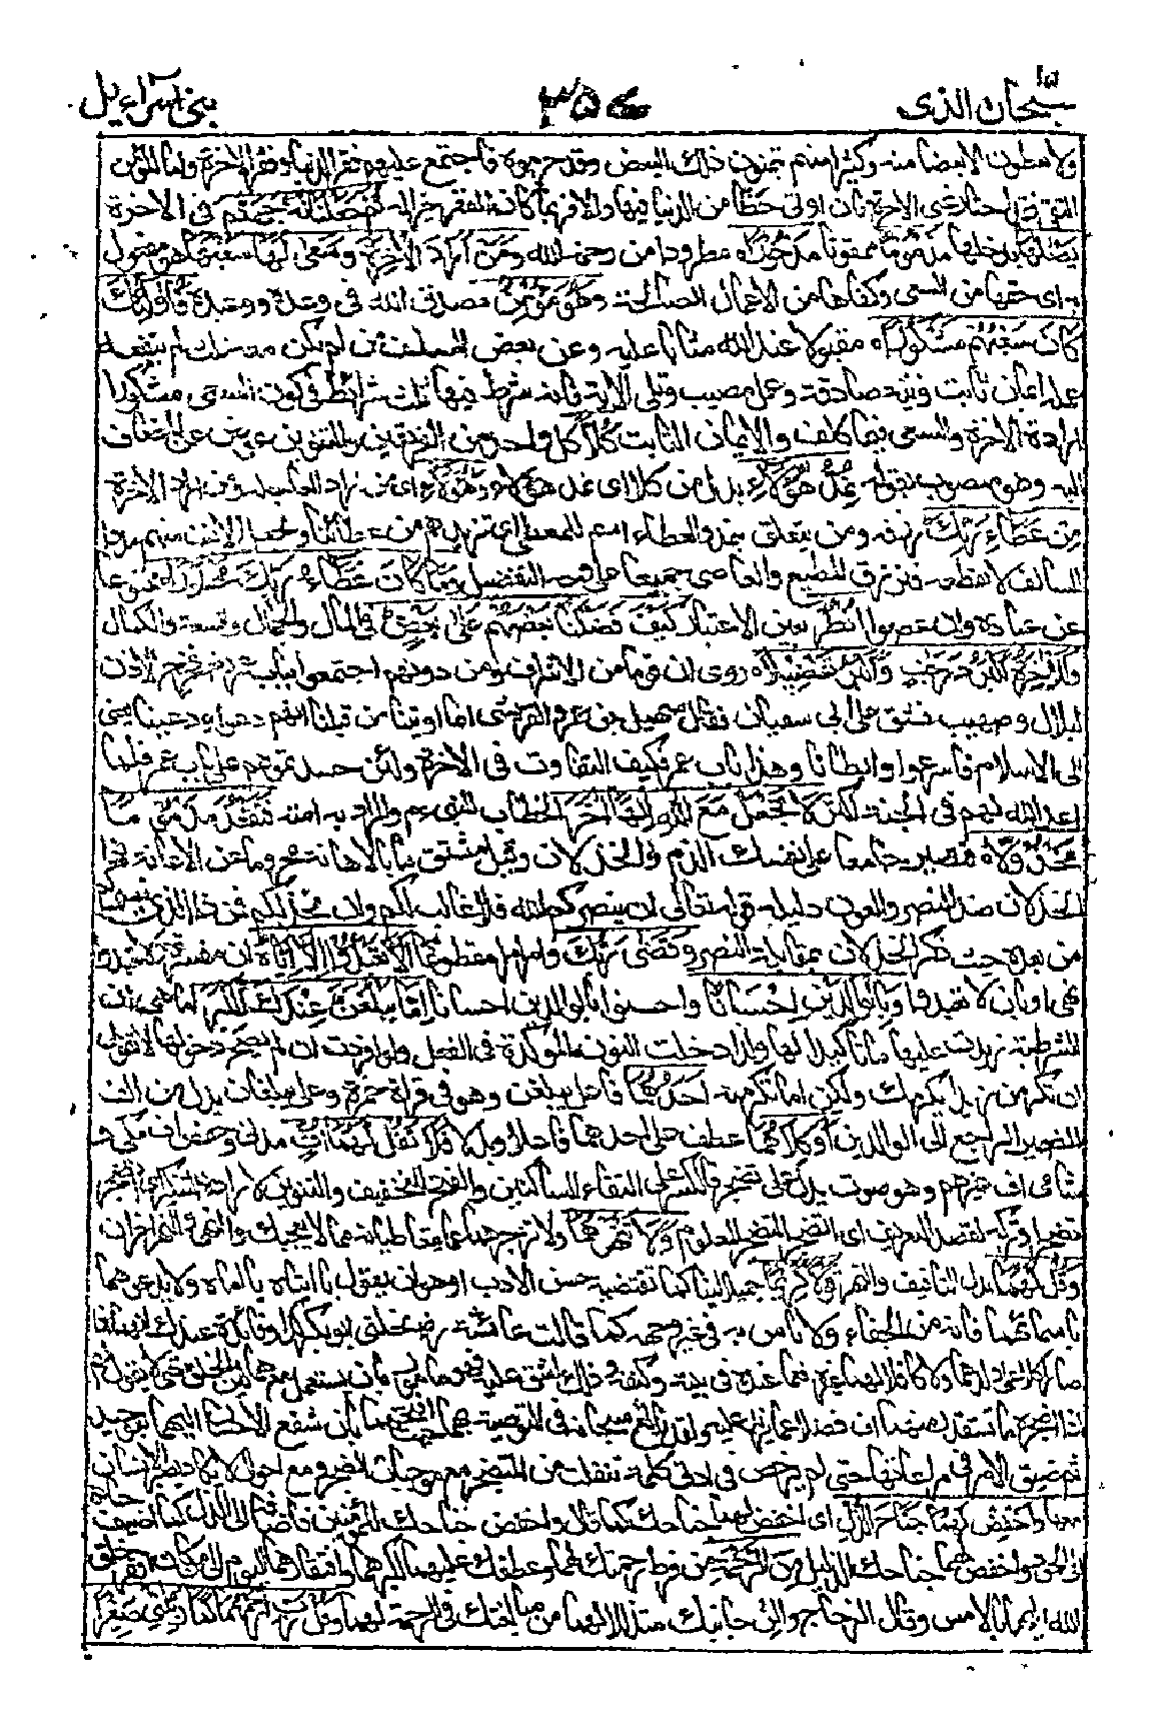 سبحان الذی ١٥
٣٥٧
بنی اسرآءیل
ولا یعطون الا بعضا منه وکثیرا منهم یتمنون ذلک البعض وقد حرموه فاجتمع علیهم فقر الدنیا وفقر الآخرة واما المؤمن
التقی فقد اختار غنی الآخرة فان اوتی حظا من الدنیا فبها والا فربما کان الفقر خیرا له ثم جعلنا له جهنم فی الآخرة
یصلىها یدخلها مذموما ممقوتا مدحورا ه مطرودا من رحمة الله ومن اراد الآخرة وسعی لها سعیها هو مفعول
به ای حقها من السعی وکفاءها من الاعمال الصالحة وهو مؤمن مصدق الله فی وعده ووعیده فاولئک
کان سعیهم مشکورا ه مقبولا عند الله مثابا علیه وعن بعض السلف من لم یکن معه ثلث لم ینفعه
عمله ایمان ثابت ونیة صادقة وعمل مصیب وتلا الآیة فانه شرط فیها ثلث شرائط فی کون السعی مشکورا
ارادة الآخرة والسعی فیما کلف والایمان الثابت کلا کل واحد من الفریقین والتنوین عوض عن المضاف
الیه وهو منصوب بقوله نمد هؤلاء بدل من کلا ای نمد هؤلاء وهؤلاء ای من اراد العاجلة ومن اراد الآخرة
من عطاء ربک رزقه ومن یتعلق بنمد والعطاء اسم للمعطی ای نزیدهم من عطائنا ونجعل الآنف منهم مددا
للسالف لا نقطعه فنرزق المطیع والعاصی جمیعا علی وجه التفضل وما کان عطاء ربک محظورا ه ممنوعا
عن عباده وان عصوا انظر بعین الاعتبار کیف فضلنا بعضهم علی بعض فی المال والجمال والسعة والکمال
وللآخرة اکبر درجت واکبر تفضیلا ه روی ان قوما من الاشراف ومن دونهم اجتمعوا بباب عمر فخرج الاذن
لبلال وصهیب فشق علی ابی سفیان فقال سهیل بن عمرو القرشی انما اوتینا من قبلنا انهم دعوا ودعینا یعنی
الی الاسلام فاسرعوا وابطأنا وهذا باب عمر فکیف التفاوت فی الآخرة ولئن حسدتموهم علی باب عمر فلما
اعد الله لهم فی الجنة اکثر لا تجعل مع الله الها اخر الخطاب للنبی عم والمراد به امته فتقعد مذموما
مخذولا ه فتصیر جامعا علی نفسک الذم والخذلان وقیل مشتوما بالاهانة محروما عن الاعانة اذ
الخذلان ضد النصر والعون دلیله قوله تعالی ان ینصرکم الله فلا غالب لکم وان یخذلکم فمن ذا الذی ینصرکم
من بعده حیث ذکر الخذلان بمقابلة النصر وقضی ربک وامر امرا مقطوعا الا تعبدوا الا ایاه ان مفسرة ولا تعبدوا
نهی او بان لا تعبدوا وبالوالدین احسانا واحسنوا بالوالدین احسانا اما یبلغن عندک الکبر اما هی ان
الشرطیة زیدت علیها ما تاکیدا لها ولذا دخلت النون المؤکدة فی الفعل ولو افردت ان لم یصح دخولها لا تقول
ان تکرمن زیدا یکرمک ولکن اما تکرمنه احدهما فاعل یبلغن وهو فی قراءة حمزة وعلی یبلغان بدل من الف
الضمیر الراجع الی الوالدین او کلاهما عطف علی احدهما فاعلا وبدلا فلا تقل لهما اف مدنی وحفص اف مکی و
شامی اف غیرهم وهو صوت یدل علی تضجر فالکسر علی التقاء الساکنین والفتح للتخفیف والتنوین لارادة التنکیر ای اتضجر
تضجرا وترکه لقصد التعریف ای اتضجر التضجر المعلوم ولا تنهرهما ولا تزجرهما عما یتعاطیانه مما لا یعجبک والنهی والنهر اخوان
وقل لهما بدل التافیف والنهر قولا کریما جمیلا لینا کما تقتضیه حسن الادب او هو ان یقول یا ابتاه یا اماه ولا یدعوهما
باسمائهما فانه من الجفاء ولا بأس به فی غیر وجهه کما قالت عائشة رض نحلنی ابو بکر کذا وفائدة عندک انهما اذا
صارا کلا علی ولدهما ولا کافل لهما غیره فهما عنده فی بیته وکنفه وذلک اشق علیه فهو مامور بان یستعمل معهما لین الخلق حتی لا یقول لهما
اذا اضجره ما یستقذر منهما اف فضلا عما یزید علیه ولقد بالغ سبحانه فی التوصیة بهما حیث افتتحها بان شفع الاحسان الیهما بتوحیده
ثم ضیق الامر فی مراعاتهما حتی لم یرخص فی ادنی کلمة تنفلت من المتضجر مع موجبات الضجر ومع احوال لا یکاد یصبر الانسان
معها واخفض لهما جناح الذل ای اخفض لهما جناحک کما قال واخفض جناحک للمؤمنین فاضافه الی الذل کما اضیف حاتم
الی الجود واخفض لهما جناحک الذلیل من الرحمة من فرط رحمتک لهما وعطفک علیهما لکبرهما وافتقارهما الیوم الی من کان افقر خلق
الله الیهما بالامس وقال الزجاج والن جانبک متذللا لهما من مبالغتک فی الرحمة لهما وقل رب ارحمهما کما ربینی صغیرا